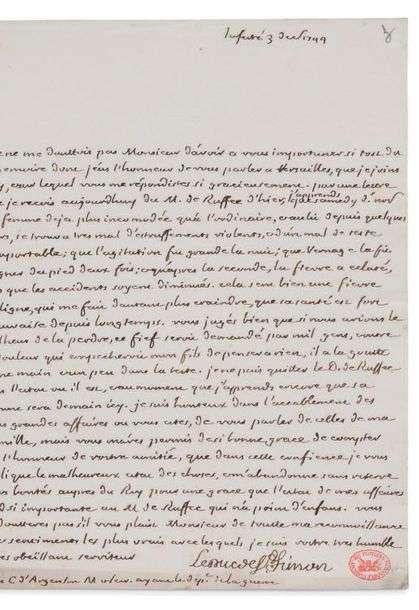 lafuté 3 dec 1744
ene me douttois pas Monsieur d'avoir a vous importuner si tost du
memoire dont j'eus l'honneur de vous parler a Versailles, que je joins
, et sur lequel vous me répondistes si gracieusement. par une lettre
je reçois aujourdhuy du M. de Ruffec d'hier, j'apprends que samedy d.
femme deja plus incomodée que l'ordinaire, et aulit depuis quelques
rs, se trouva tres mal d'estouffements violents, et d'un mal de teste
importable; que l'agitation fu grande la nuit; que Vernage la fit
igner du pied deux fois; et qu'apres la seconde, la fievre a eclaté,
que les accidents soyent diminués. cela sent bien une fievre
ligne, qui me fait d'autant plus craindre, que sa santé est fort
auvaise depuis longtemps. vous jugés bien que si nous avions le
lheur de la perdre, ce fief seroit demandé par mil gens, outre
ouleur qui empescheroit mon fils de penser a rien, il a la goutte
ne main et un peu dans la teste. je ne puis quitter le D. de Ruffec
s l'estat ou il est, et au moment que j'apprends encore que sa
nne sera demain icy. je suis honteux dans l'accablement des
us grandes affaires ou vous estes, de vous parler de celles de ma
mille, mais vous m'avés permis de si bonne grace de compter
l'honneur de vostre amitié, que dans cette confience je vous
plique le malheureux estat des choses, et m'abandonne sans reserve
os bontés aupres du Roy pour une grace que l'estat de mes affaires
d si importante au M. de Ruffec qui n'a point d'enfans. vous
doutterés pas s'il vous plaist Monsieur de toutte ma reconnoissance
es sentiments les plus vrais avec lesquels je suis votre tres humble
res obeissant serviteur
Le Duc de St Simon
C d'Argenson M